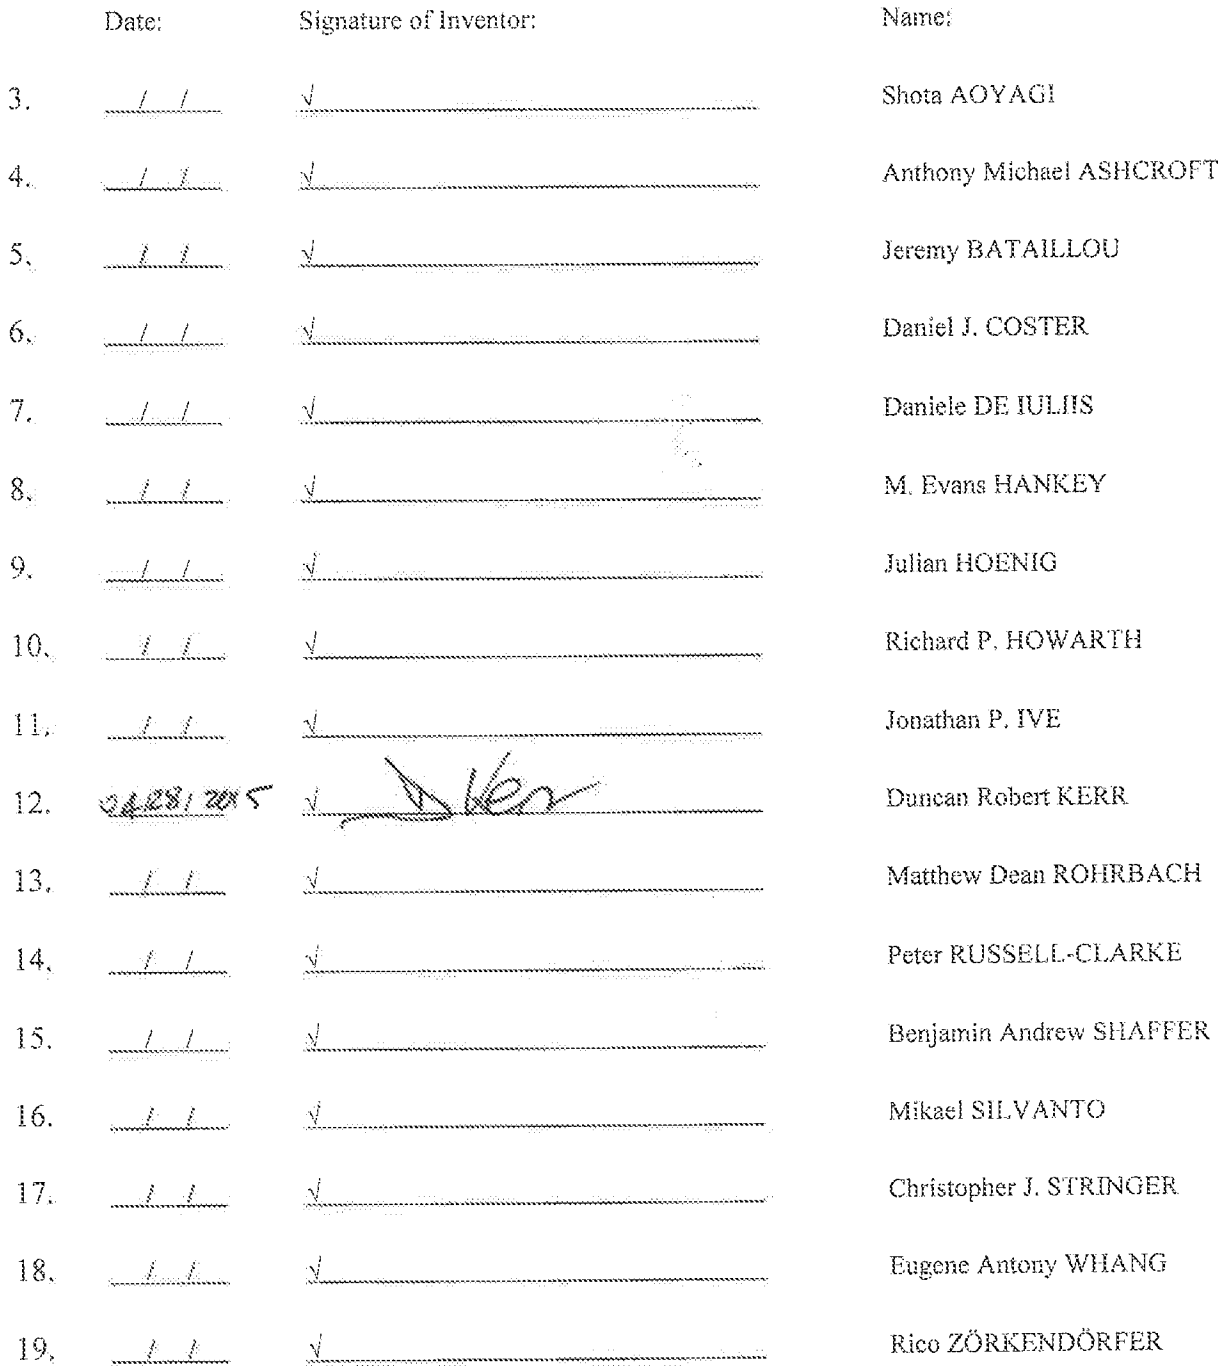 Date: Signature of Inventor: Name:
3. / / √ Shota AOYAGI
4. / / √ Anthony Michael ASHCROFT
5. / / √ Jeremy BATAILLOU
6. / / √ Daniel J. COSTER
7. / / √ Daniele DE IULIIS
8. / / √ M. Evans HANKEY
9. / / √ Julian HOENIG
10. / / √ Richard P. HOWARTH
11. / / √ Jonathan P. IVE
12. 04/28/2015 √ D Kerr Duncan Robert KERR
13. / / √ Matthew Dean ROHRBACH
14. / / √ Peter RUSSELL-CLARKE
15. / / √ Benjamin Andrew SHAFFER
16. / / √ Mikael SILVANTO
17. / / √ Christopher J. STRINGER
18. / / √ Eugene Antony WHANG
19. / / √ Rico ZÖRKENDÖRFER